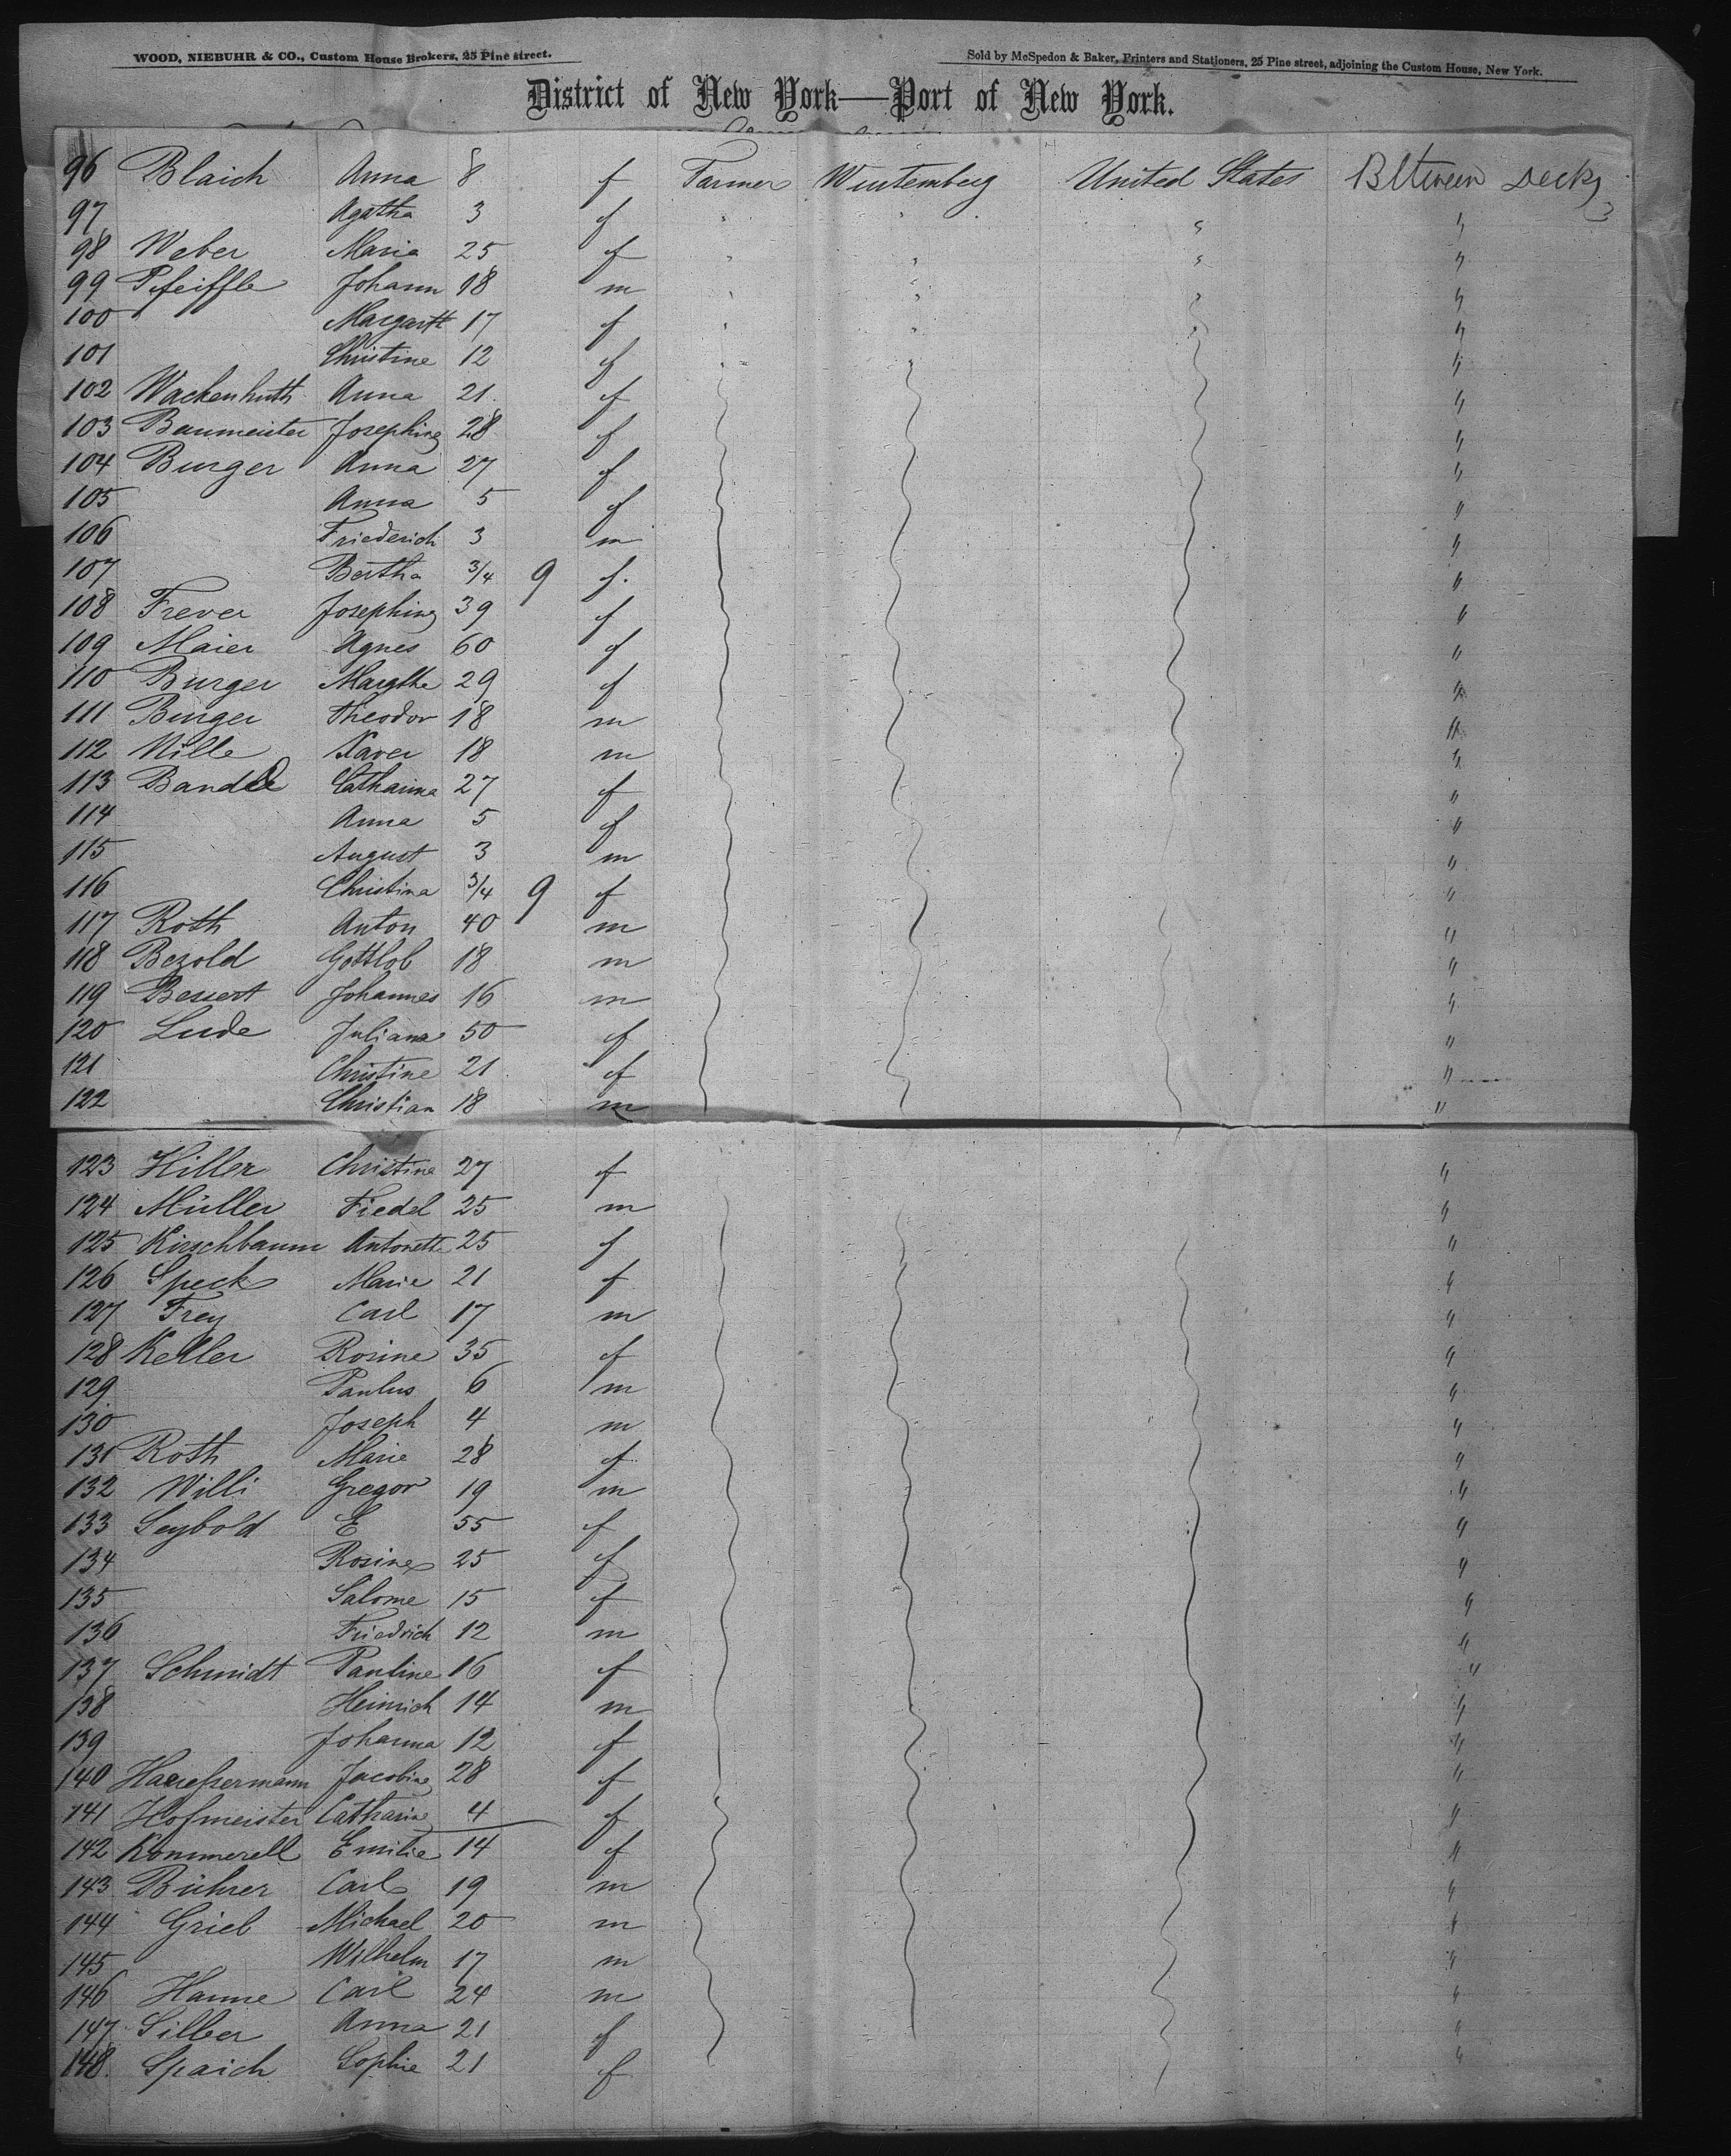 WOOD, NIEBUHR & CO., Custom House Brokers, 25 Pine street.
Sold by McSpedon & Baker, Printers and Stationers, 25 Pine street, adjoining the Custom House, New York.
District of New York—Port of New York.
96 Blaich Anna 8 f Farmer Wurtemberg United States Between Decks
97 Agatha 3 f " " " "
98 Weber Maria 25 f " " " "
99 Pfeiffle Johann 18 m " " " "
100 Margarth 17 f " " " "
101 Christine 12 f " " "
102 Wackenhuth Anna 21 f "
103 Baumeister Josephine 28 f "
104 Burger Anna 27 f "
105 Anna 5 f "
106 Friederich 3 m "
107 Bertha 3/4 9 f. "
108 Frever Josephine 39 f "
109 Maier Agnes 60 f "
110 Burger Margthe 29 f "
111 Burger Theodor 18 m "
112 Nille Xaver 18 m "
113 Bandle Catharina 27 f "
114 Anna 5 f "
115 August 3 m "
116 Christina 3/4 9 f "
117 Roth Anton 40 m "
118 Bezold Gottlob 18 m "
119 Bessert Johannes 16 m "
120 Lude Juliana 50 f "
121 Christine 21 f "
122 Christian 18 m "
123 Hiller Christine 27 f "
124 Müller Fiedel 25 m "
125 Kirschbaum Antonette 25 f "
126 Speck Marie 21 f "
127 Frey Carl 17 m "
128 Keller Rosine 35 f "
129 Paulus 6 m "
130 Joseph 4 m "
131 Roth Marie 28 f "
132 Willi Gregor 19 m "
133 Seybold E 55 f "
134 Rosine 25 f "
135 Salome 15 f "
136 Friedrich 12 m "
137 Schmidt Pauline 16 f "
138 Heinrich 14 m "
139 Johanna 12 f "
140 Haeußermann Jacobine 28 f "
141 Hofmeister Catharine 4 f "
142 Kommerell Emilie 14 f "
143 Bührer Carl 19 m "
144 Grieb Michael 20 m "
145 Wilhelm 17 m "
146 Hanne Carl 24 m "
147 Silber Anna 21 f "
148. Spaich Sophie 21 f "